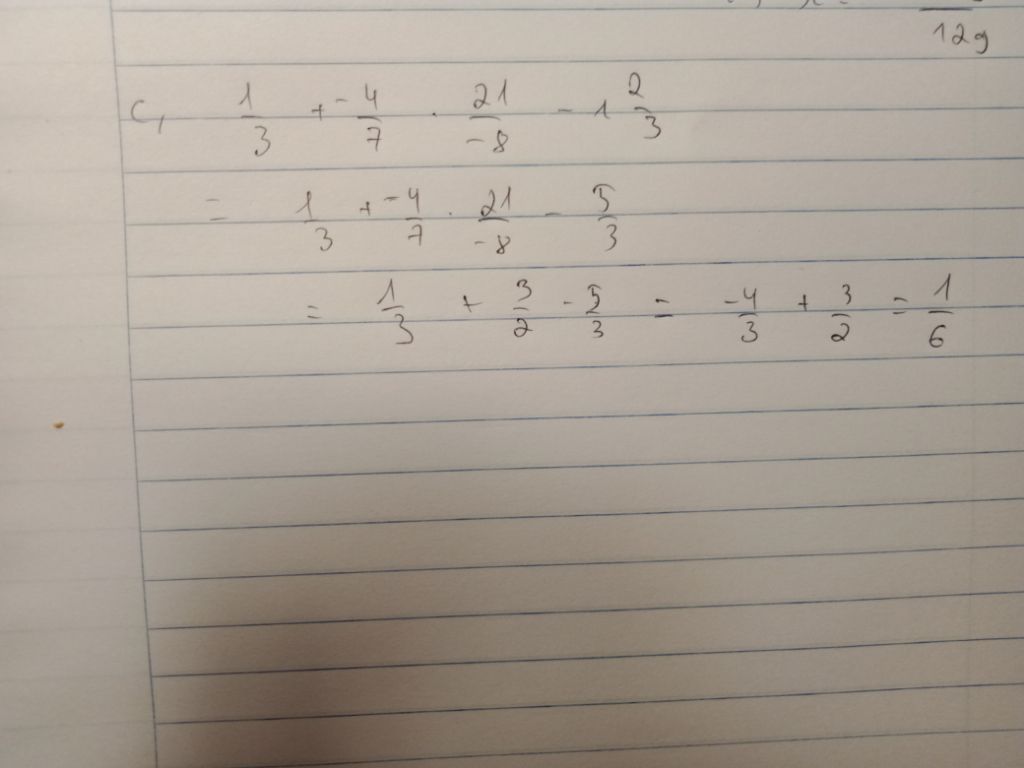 129
c, 1/3 + -4/7 . 21/-8 - 1 2/3
= 1/3 + -4/7 . 21/-8 - 5/3
= 1/3 + 3/2 - 5/3 = -4/3 + 3/2 = 1/6